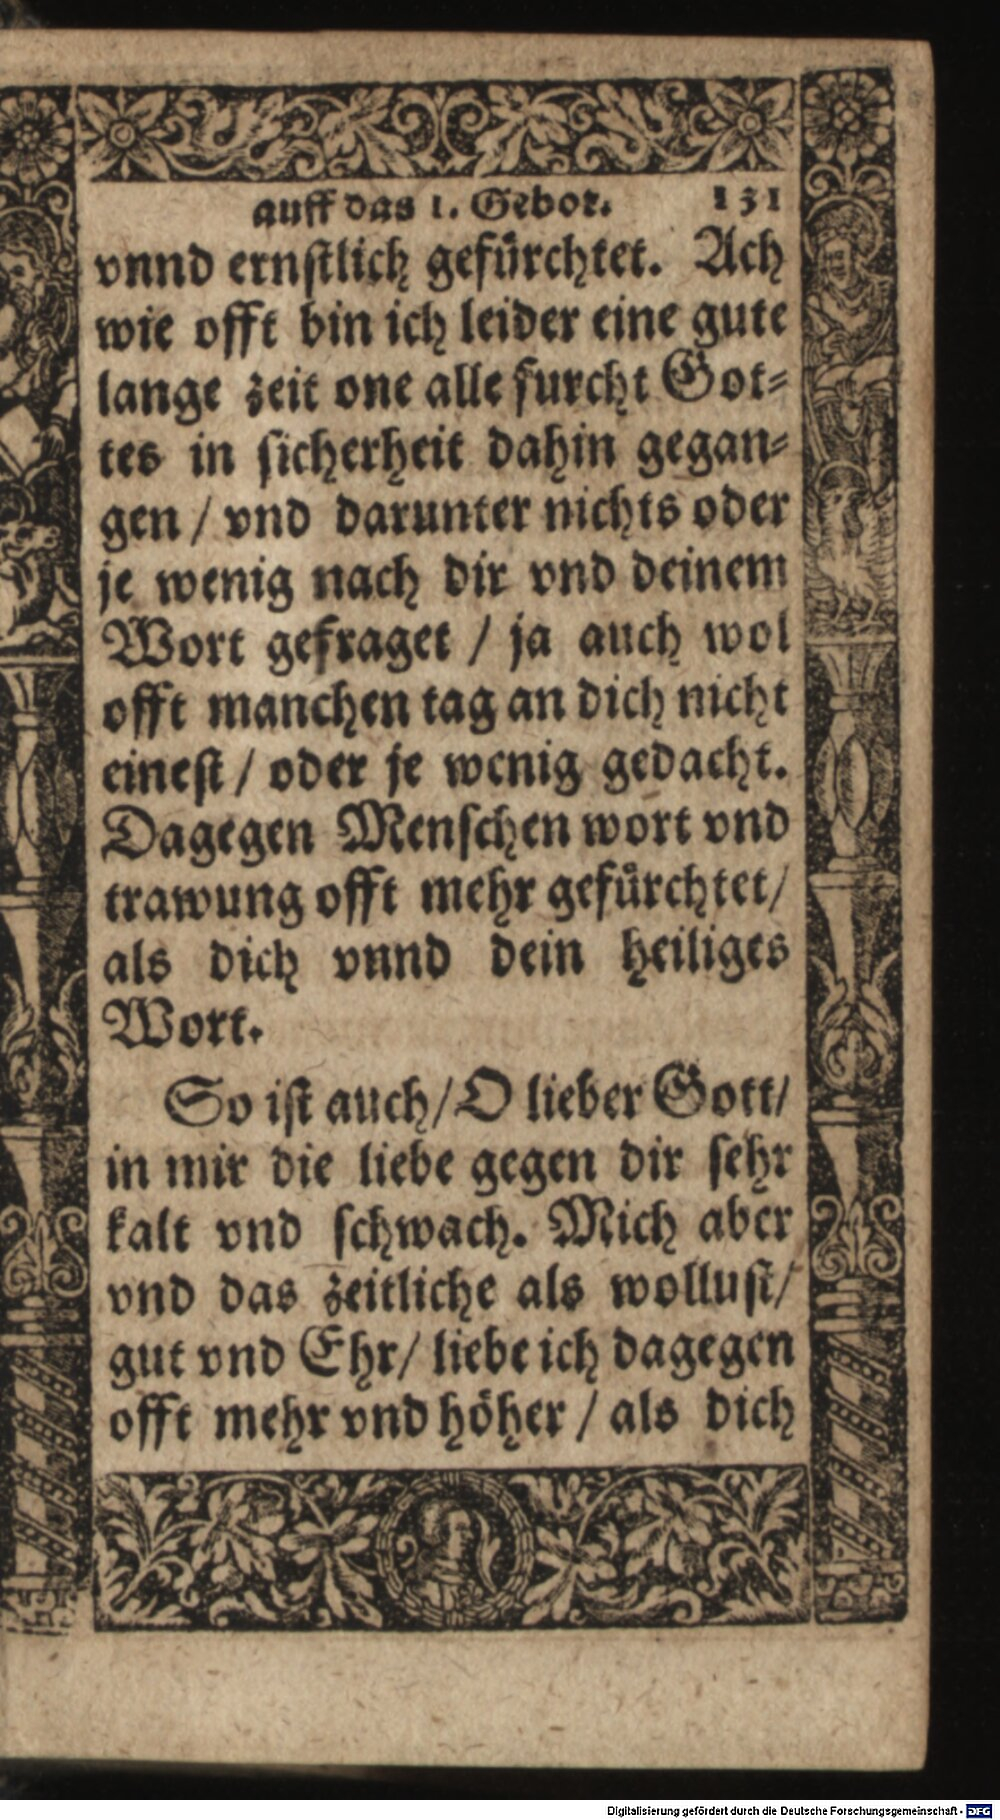 auff das 1. Gebot. 131
vnnd ernstlich gefürchtet. Ach
wie offt bin ich leider eine gute
lange zeit one alle furcht Got-
tes in sicherheit dahin gegan-
gen / vnd darunter nichts oder
je wenig nach dir vnd deinem
Wort gefraget / ja auch wol
offt manchen tag an dich nicht
einest / oder je wenig gedacht.
Dagegen Menschen wort vnd
trawung offt mehr gefürchtet /
als dich vnnd dein heiliges
Wort.
So ist auch / O lieber Gott /
in mir die liebe gegen dir sehr
kalt vnd schwach. Mich aber
vnd das zeitliche als wollust /
gut vnd Ehr / liebe ich dagegen
offt mehr vnd höher / als dich
Digitalisierung gefördert durch die Deutsche Forschungsgemeinschaft - DFG